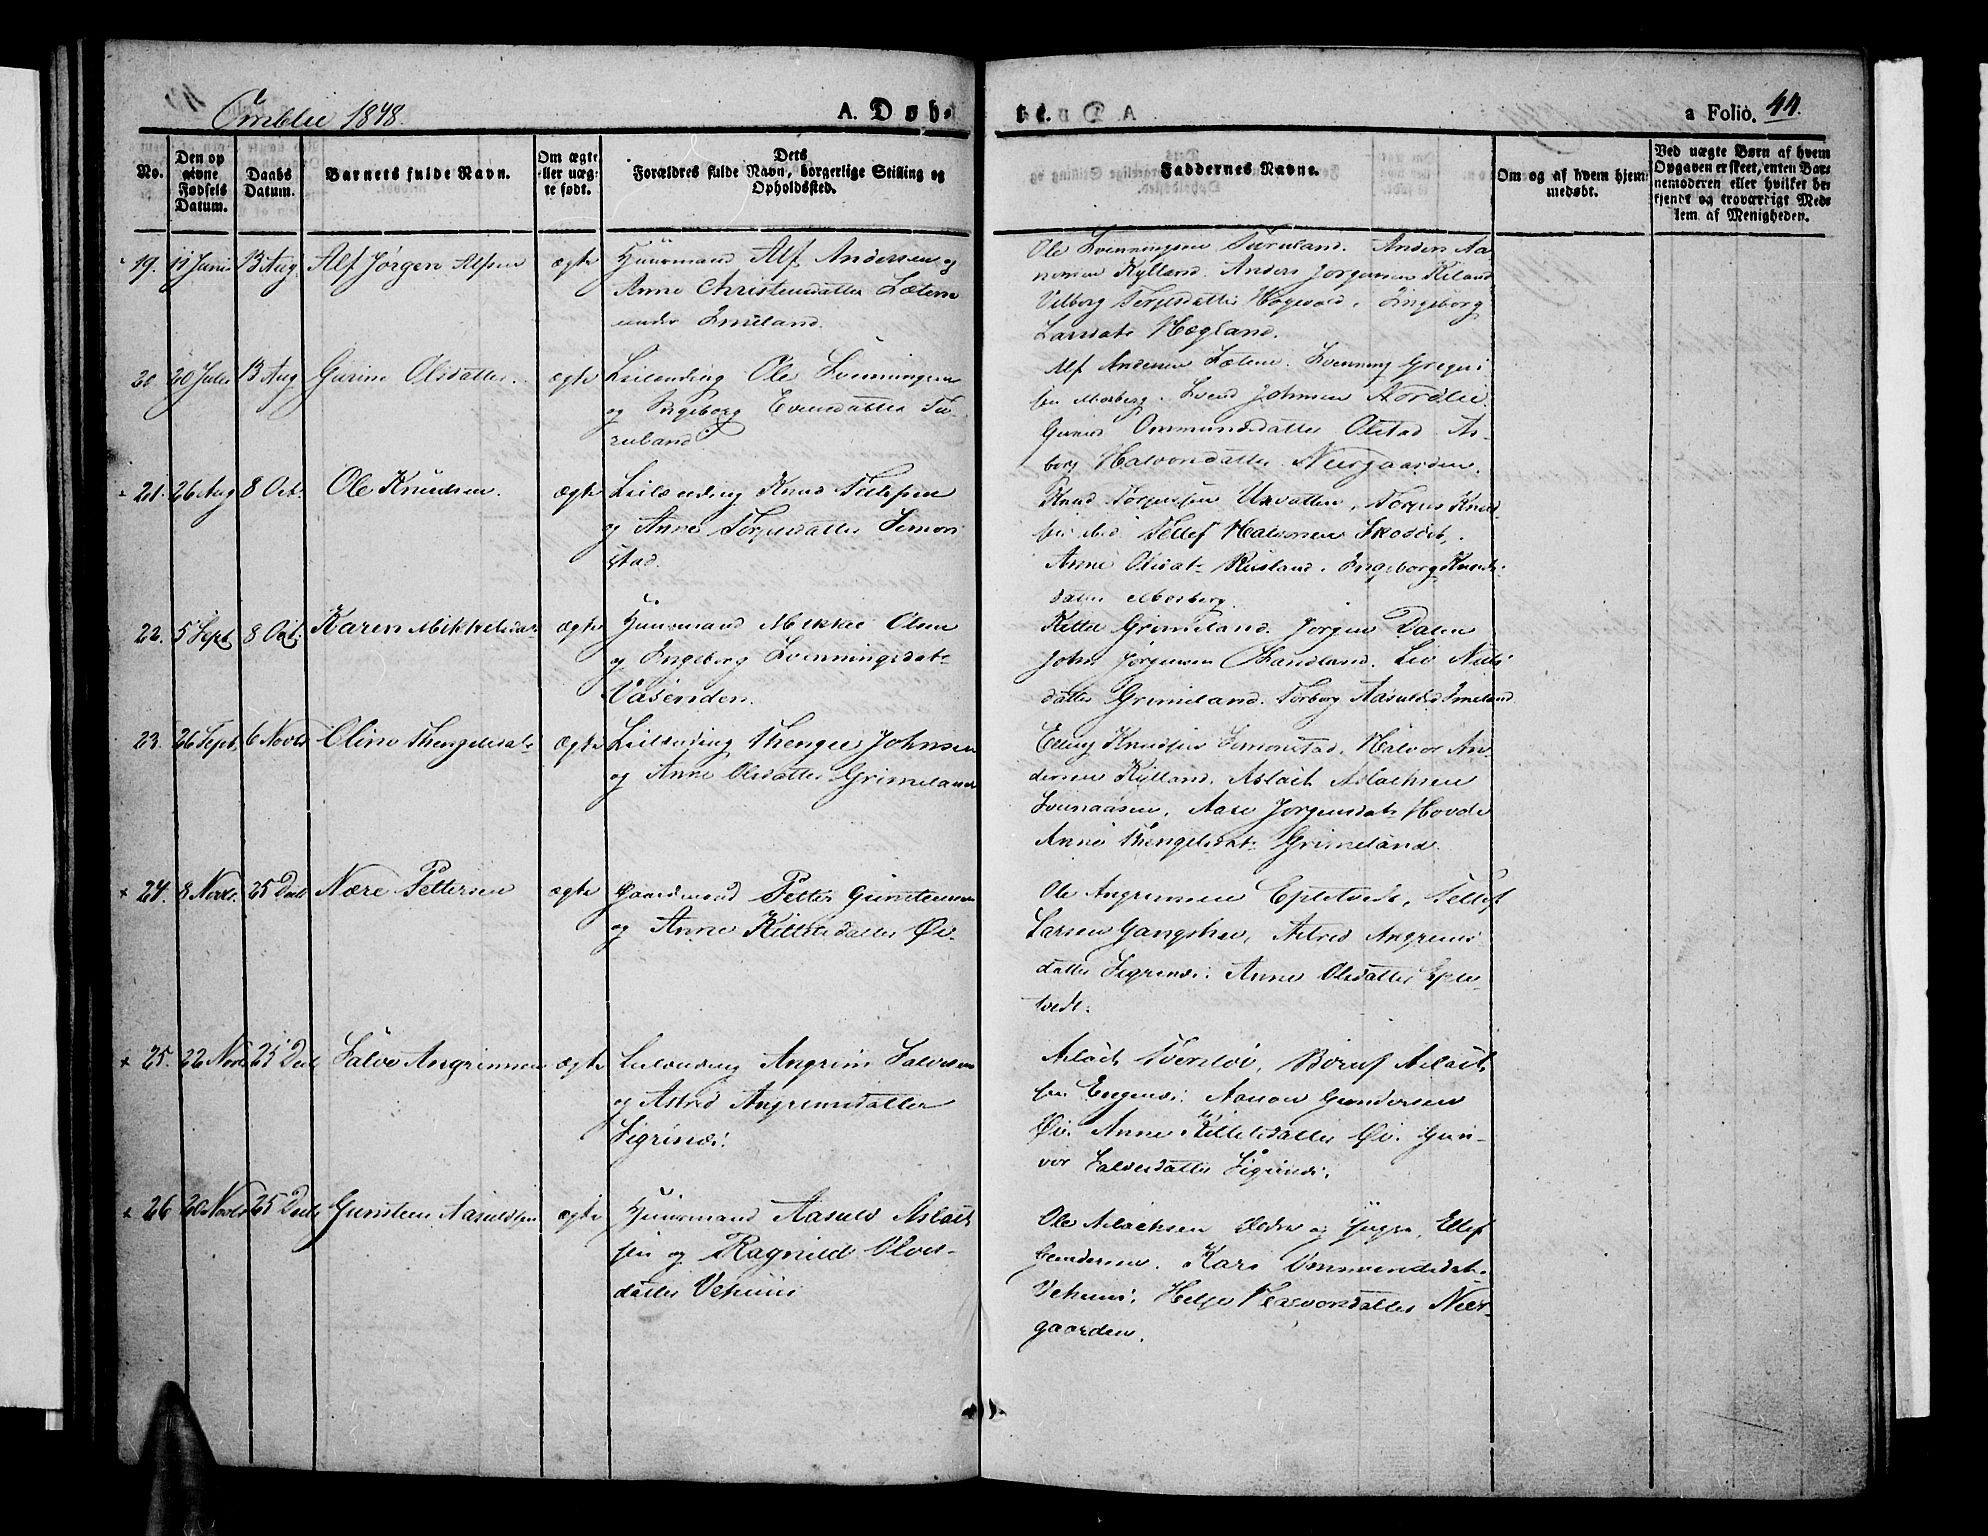 Omblie 1848.
A. Døb-
te.
a Folio. 44.
No.
Den op
givne
Fødsels
Datum.
Daabs
Datum.
Barnets fulde Navn.
Om ægte
eller uæg-
te født.
Dets
Forældres fulde Navn, borgerlige Stilling og
Opholdssted.
Faddernes Navne.
Om og af hvem hjem-
medøbt.
Ved uægte Børn af hvem
Opgaven er skeet, enten Bar-
nemoderen eller hvilket be-
kjendt og troværdigt Med-
lem af Menigheden.
19. 11 Juni 13 Aug Alf Jörgen Alfsen ægte Huusmand Alf Andersen og
Anne Christensdatter
under
Ole Svenningsen Tureland. Anders Aa-
nonsen Kylland. Anders Jörgensen
Vilborg Terjesdatter Ingeborg
Larsdatr Hægland.
20 20 Juli 13 Aug Gurine Olsdatter. ægte Leilænding Ole Svenningsen
og Ingeborg Evensdatter Tu-
reland
Alf Andersen Svenning Gregers-
sen Mosberg. Svend Johnsen Nordlie
Ommundsdatter Olstad. As-
borg Halvorsdatter Neergaarden.
21. 26 Aug 8 Oct. Ole Knudsen. ægte Leilænding Knud Tellefsen
og Anne Torjusdatter Simon-
stad.
Knud Torjussen Uxvatten, Torjus Knud-
sen ibid. Tellef Halvorsen
Anne Olsdatr Rusland. Ingeborg Knuds-
datter Mosberg
22. 5 Sept 8 Oct. Karen Mikkelsdr ægte Huusmand Mikkel Olsen
og Ingeborg Svenningsdatr
Vasenden.
Kittel Grimeland. Jörgen Dalen
John Jörgensen Liv Niels-
datter Grimeland. Torborg Aasulsd
23. 26 Sept, 6 Novbr Oline Thengelsdatr ægte Leilænding Thengel Johnsen
og Anne Olsdatter Grimeland
Knudsen Simonstad, Halvor An-
dersen Kylland, Aslach Aslachsen
Svenaasen, Aase Jörgensdatr Hovde
Anne Thengelsdatr Grimeland.
24. 8 Novbr. 25 Decb Nære Pettersen ægte Gaardmand Petter Gunstensen
og Anne Kittelsdatter Öi-
Ole Angrimsen Epletvedt, Tellef
Larsen Astrid Angrims-
datter Sigrinæs. Anne Olsdatter Eple-
tvedt.
25. 22 Novb 25 Decb Salve Angrimsen ægte Leilænding Angrim Salvesen
og Astrid Angrimsdatter
Sigrinæs.
Aslach Aslach-
sen Gundersen
Öi. Anne Kittelsdatter Öi. Gun-
vor Salvesdatter Sigrinæs.
26 20 Novbr 25 Decb Gunsten Aasuldsen ægte Huusmand Aasuld Aslach-
sen og Ragnild Olves-
datter Vehuus
Ole Aslachsen ældre og yngre, Ellef
Gundersen. Kari Ommundsdatr
Vehuus. Helje Halvorsdatter Neer-
gaarden.